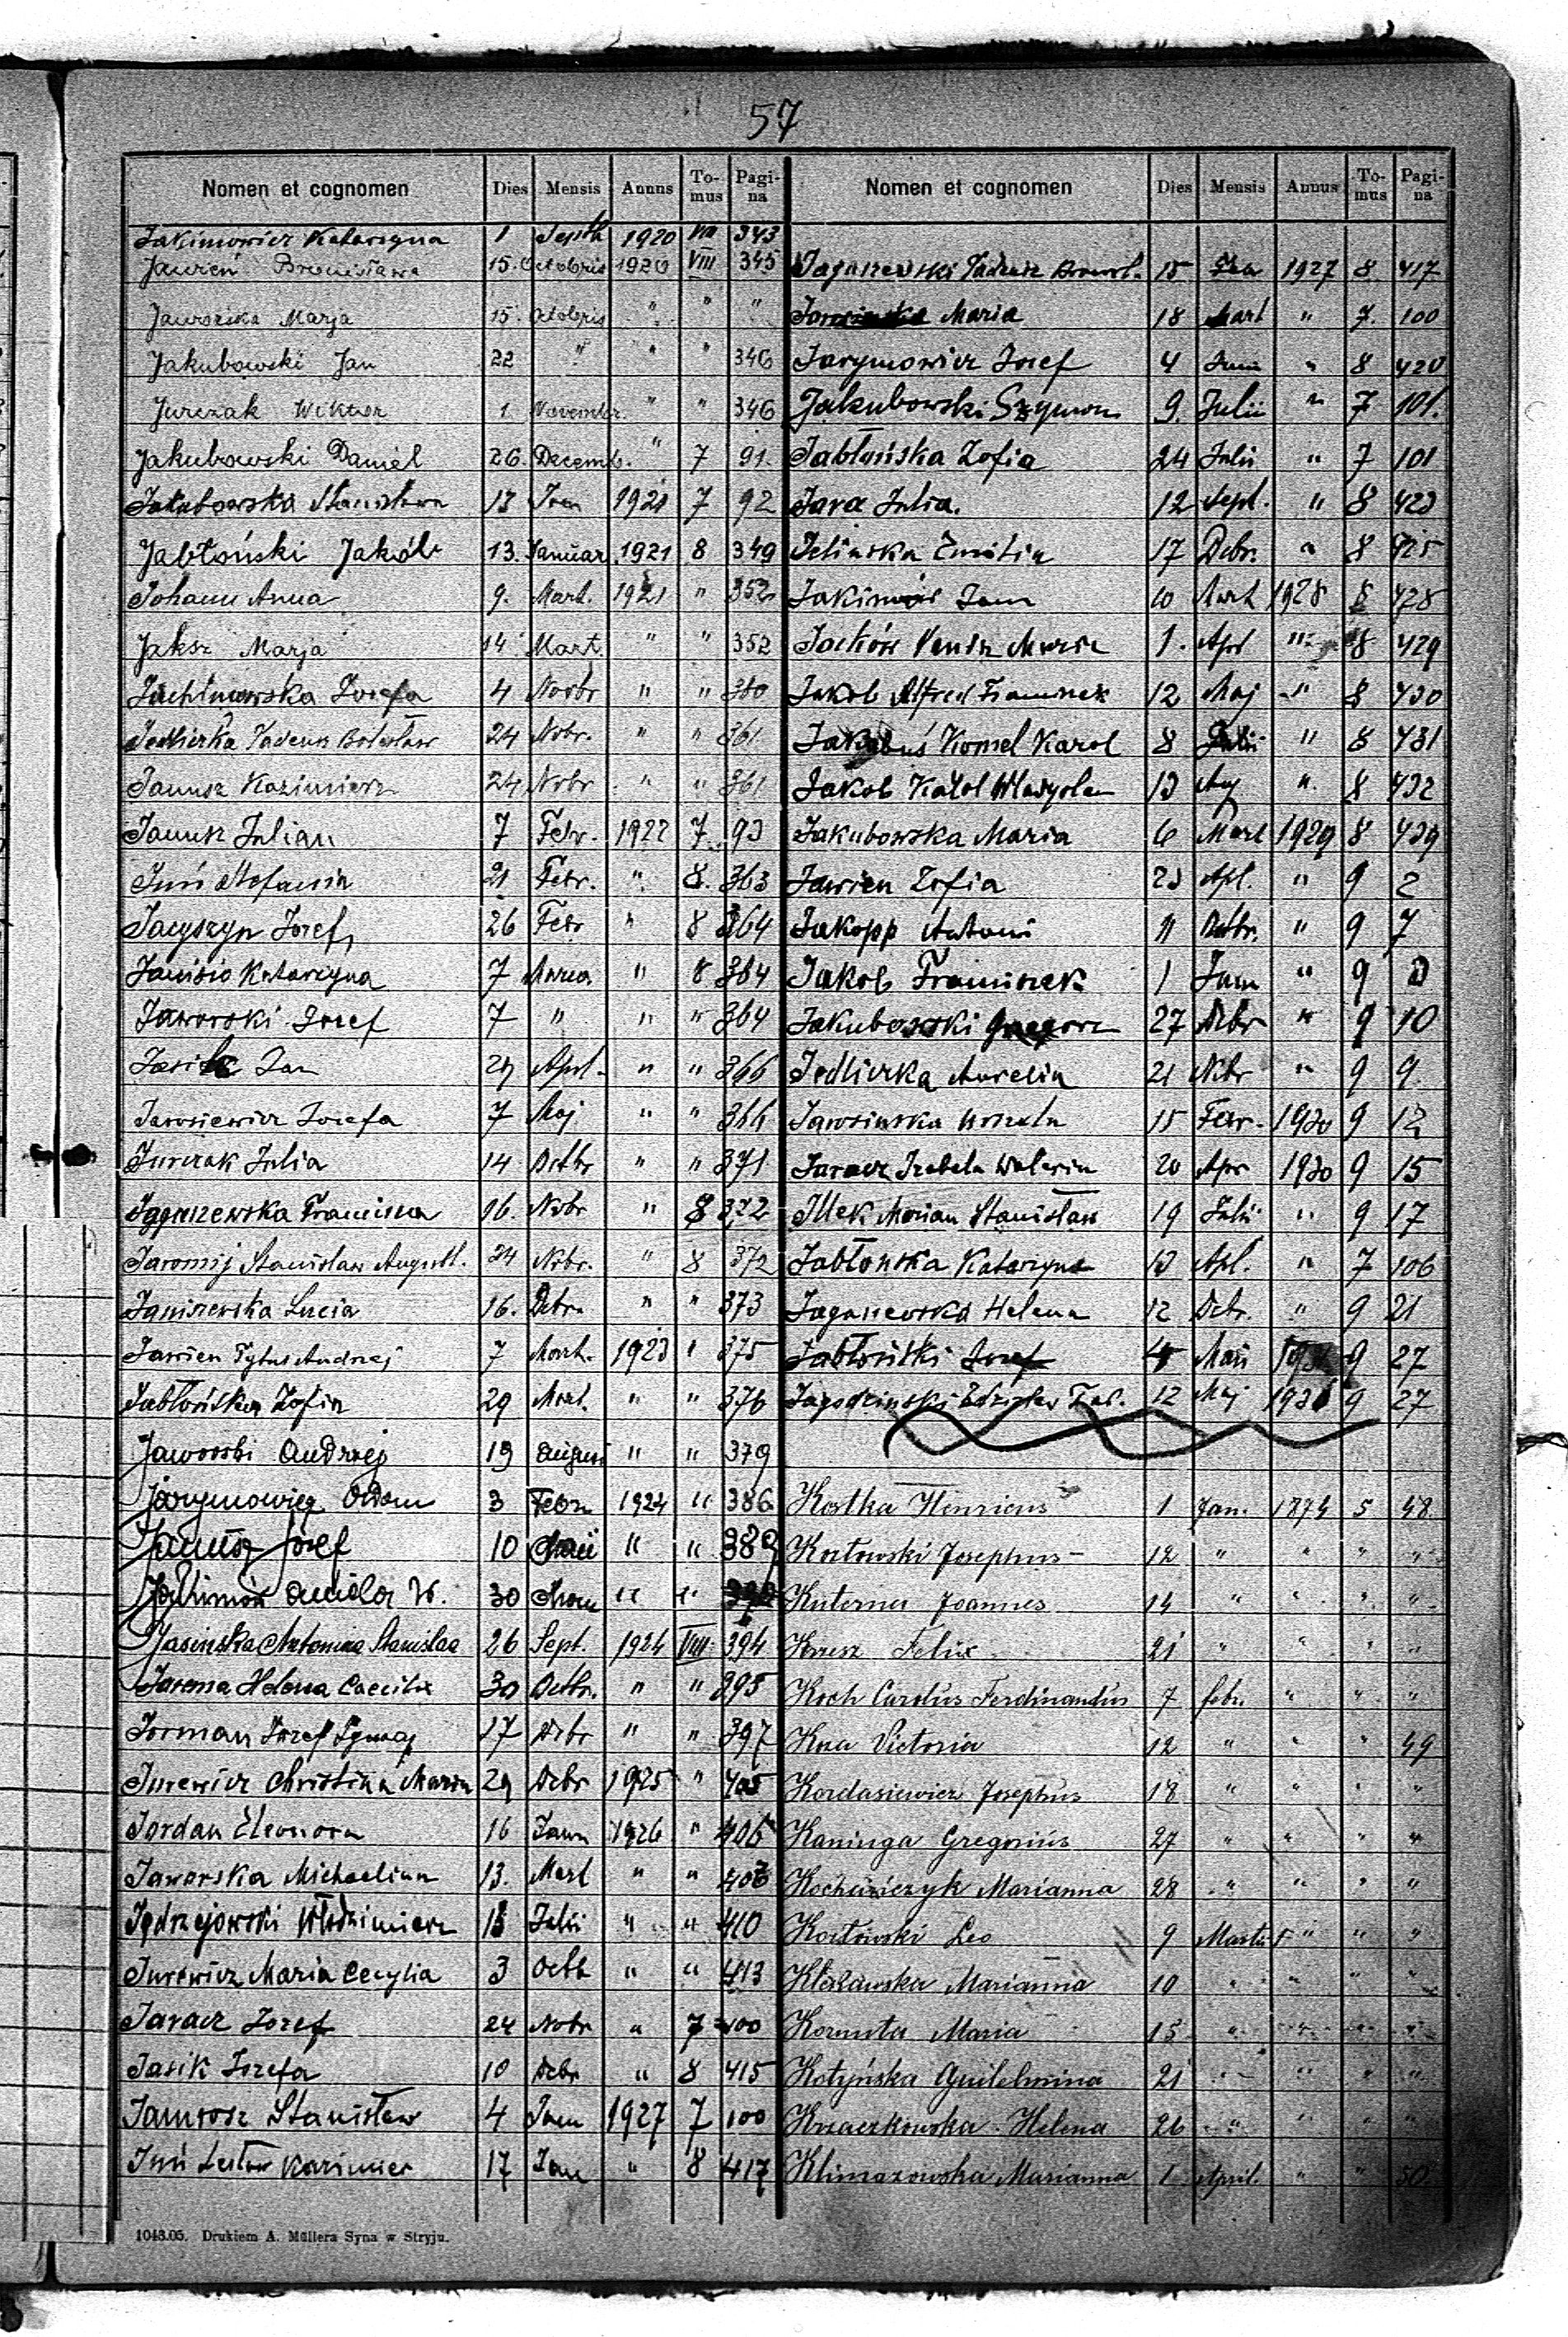 57
Nomen et cognomen Dies Mensis Annus To-mus Pagi-na
Jakimowicz Katarzyna 1 Septb 1920 VIII 343
Jaureń Bronisława 15. Octobris 1920 VIII 345
Jaworska Marja 15. Octobris " " "
Jakubowski Jan 22 " " " 346
Jurczak Wiktor 1 November. " " 346
Jakubowski Daniel 26. Decemb. " 7 91.
Jakubowska Stanisława 13 Jan 1921 7 92
Jabłoński Jakób 13. Januar. 1921 8 349
Johann Anna 9. Mart. 1921 " 352
Jaksz Marja 14 Mart. " " 352
Jachimowska Józefa 4 Novbr " " 360
Jedlicka Tadeusz Bolesław 24 Nvbr. " " 361
Janusz Kazimierz 24 Nvbr " " 361
Janusz Julian 7 Febr. 1922 7 93
Juś Stefania 21 Febr. " 8. 363
Jacyszyn Józef 26 Febr " 8 364
Katarzyna 7 " 8 364
Jaworski Józef 7 " " " 364
Jasik Jan 29 Apl. " " 366
Jarosiewicz Józefa 7 Maj " " 366
Jurczak Julia 14 Octbr " " 371
Jaganzewska Franciszka 16. Nvbr " 8 372
Jaromij Stanisław August. 24 Nvbr. " 8 372
Janiszewska Lucia 16. Dcbr. " " 373
Jawien Tytus Andrzej 7 Mart. 1923 " 375
Jabłońska Zofia 29 Mart. " " 376
Jaworski Andrzej 19 August " " 379
Jarymowicz Adam 3 Febr 1924 " 386
Janusz Józef 10 Maii " " 389
30 " "
Jasińska Antonina Stanisława 26 Sept. 1924 VIII 394
Jarema Helena Caecilia 30 Octbr. " " 295
Jorman Józef Ignacy 17 Dcbr " " 397
Jurewicz Christina Maria 29 Dcbr 1925 " 405
Jordan Eleonora 16 Jann 1926 " 406
Jaworska Michaelina 13. Mart " " 406
Jędrzejowski Włodzimierz 13 Julii " " 410
Jurewicz Maria Cecylia 3 Octb " " 413
Jaracz Józef 24 Novbr " 7 100
Jasik Józefa 10 Dcbr " 8 415
Jamrosz Stanisław 4 Jan 1927 7 100
Juś Kazimierz 17 Jan " 8 417
Nomen et cognomen Dies Mensis Annus To-mus Pagi-na
Jaganzewski Tadeusz 15 Jan 1927 8. 417
Maria 18 Mart " 7. 100
Jarymowicz Józef 4 Junii " 8 420
Jakubowski Szymon 9. Julii " 7 101.
Jabłońska Zofia 24 Julii " 7 101
Jara Julia. 12 Sept. " 8 423
Jelinska Emilia 17 Dcbr. " 8 425
Jakimów Jan 10 Mart 1928 8 428
Maria 1. Apl " 8 429
Jakob Alfred Franciszek 12 Maj " 8 430
Kornel Karol 8 Julii " 8 431
Jakob Karol Władysław 13 Aug " 8 432
Jakubowska Maria 6 Mart 1929 8 439
Jawien Zofia 23 Apl. " 9 2
Jakopp Antoni 11 Octbr. " 9 7
Jakob Franciszek 1 " 9
Jakubowski 27 Dcbr " 9 10
Jedlicka Aurelia 21 Nvbr " 9 9
Jarosinska Urszula 15 Febr. 1930 9 12
Jaracz Izabela Waleria 20 Apr 1930 9 15
Illek Marian Stanisław 19 Julii " 9 17
Jabłońska Katarzyna 13 Apl. " 7 106
Jaganzewska Helena 12 Dcbr. " 9 21
Jabłoński Józef 4 Maii 9 27
Jagodzinski Zdzisław Tad. 12 Maj 1931 9 27
Kostka Henricus 1 Jan. 1874 5 48.
Kozłowski Josephus 12 " " " "
Kuterna Joannes 14 " " " "
Felix 21 " " " "
Koch Carolus Ferdinandus 7 febr. " " "
Koza Victoria 12 " " " 49
Kordasiewicz Josephus 18 " " " "
Kaninga Gregorius 27 " " " "
Marianna 28 " " " "
Kozłowski Leo 9 Martii " " "
Marianna 10 " " " "
Kornuta Maria 15 " " " "
Kotyńska Guilelmina 21 " " " "
Krzaczkowska Helena 26 " " " "
Klimazowska Marianna 1 April. " " 50
1043.05. Drukiem A. Müllera Syna w Stryju.